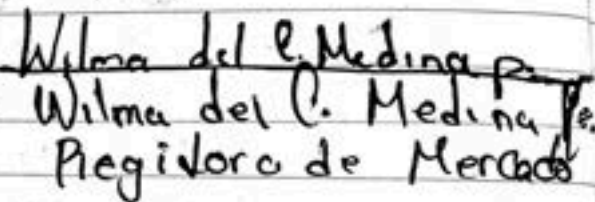 Wilma del C. Medina P.
Wilma del C. Medina P.
Regidora de Mercado